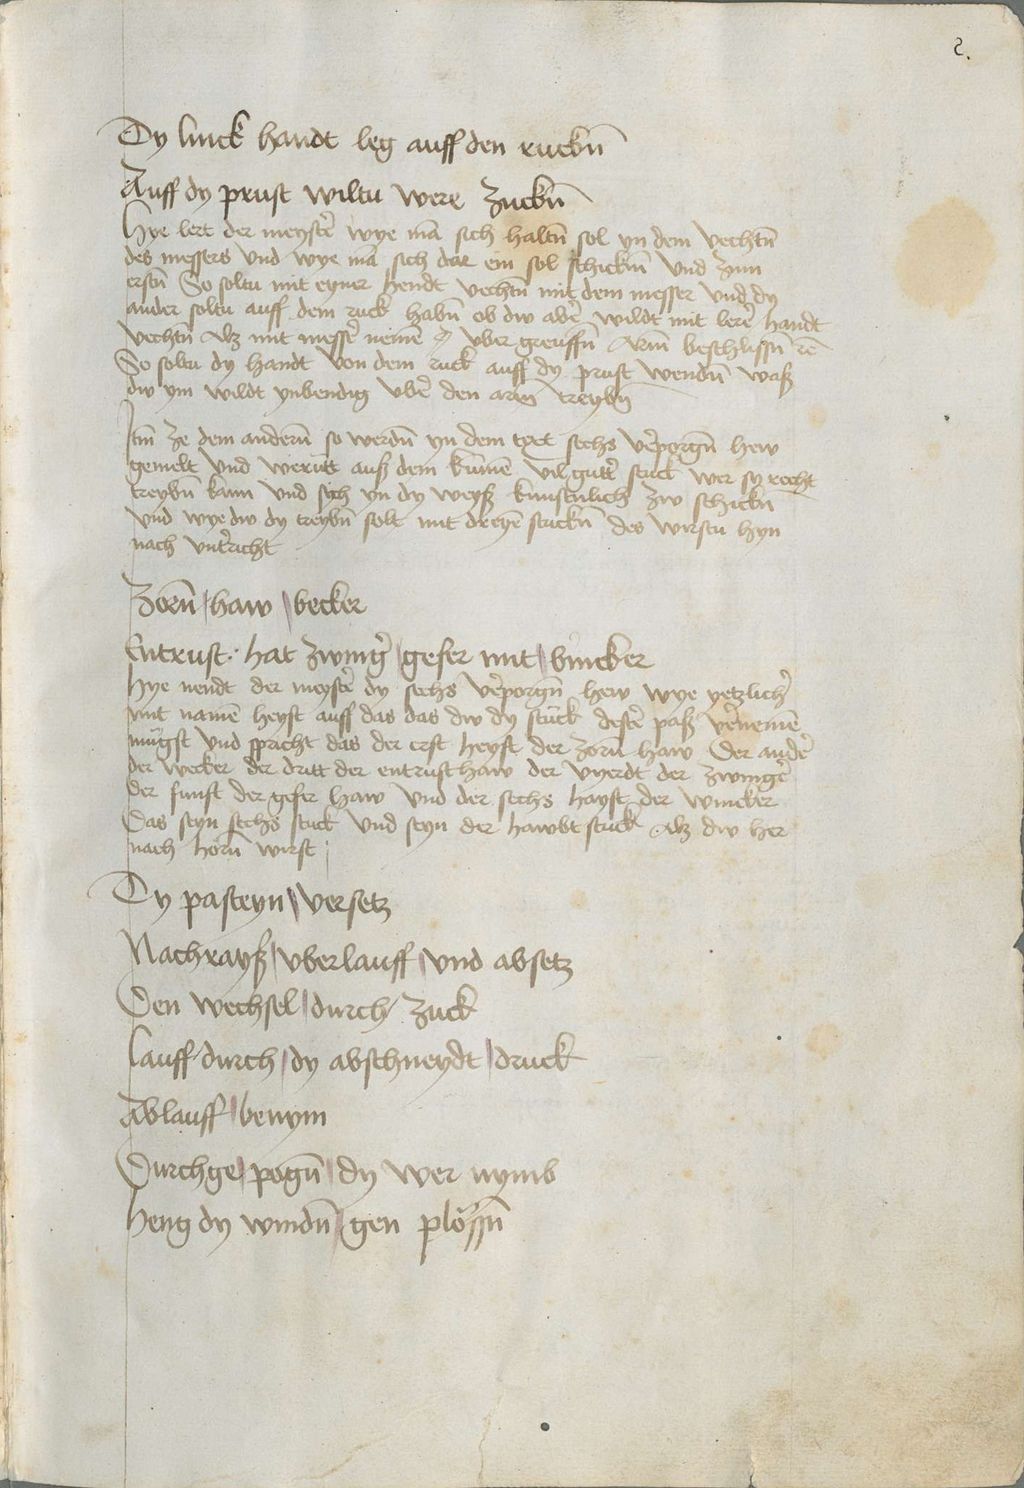 2.
Dy linck handt leg auff den ruckñ
Auff dy prust wiltu were zuckñ
Hye lert der meystẽr wye mã sich haltñ sol yn dem vechtñ
des messers vnd wye mã sich dar ein sol schicknn vnd zum
erstñ So soltu mit eyner hendt vechtñ mit dem messer vnd dy
ander soltu auff dem ruck habñ ob dw abẽr wildt mit lerẽr handt
vechtñ Alz mit messẽr nemẽ vber greuffñ Arm beschlissñ rẽ
So soltu dy handt von dem ruck auff dy prust wendñ waß
dw ym wildt ynbendig vbẽr den arm treybñ
Itm̃ ze dem anderñ so werdñ yn dem text sechs vẽrporgñ hew
gemelt vnd werntt auß dem kũmẽ vil guttẽr stuck wer sy recht
treybñ kann vnd sich yn dy weyß kunstnlich zw schickñ
vnd wye dw dy treybñ solt mit dreyẽ stuckñ des wirstu hyn
nach vntẽrricht
Zorñ haw wecker
Entrust hat zwingẽr gefer mit wincker
Hye nendt der meystẽr dy sechs vẽrporgñ hew wye yetzlichẽr
mit namẽ heyst auff das das dw dy stuck destẽr paß vẽrnemẽ
mügst vnd spricht das der erst heyst der zorñ haw Der andẽr
der wecker der dritt der entrusthaw der vyerdt der zwingẽr
der funft der gefer haw vnd der sechs hayst der wincker
Das seyn sechs stuck vnd seyn der hawbt stuck Alz dw her
nach horñ wirst
Dy pasteyn versetz
Nachrayß vberlauff vnd absetz
Den wechsel durch zuck
Lauff durch dy abschneydt druck
Ablauff benym
Durchge pogñ dy wer nymb
Heng dy windñ gen plössñ